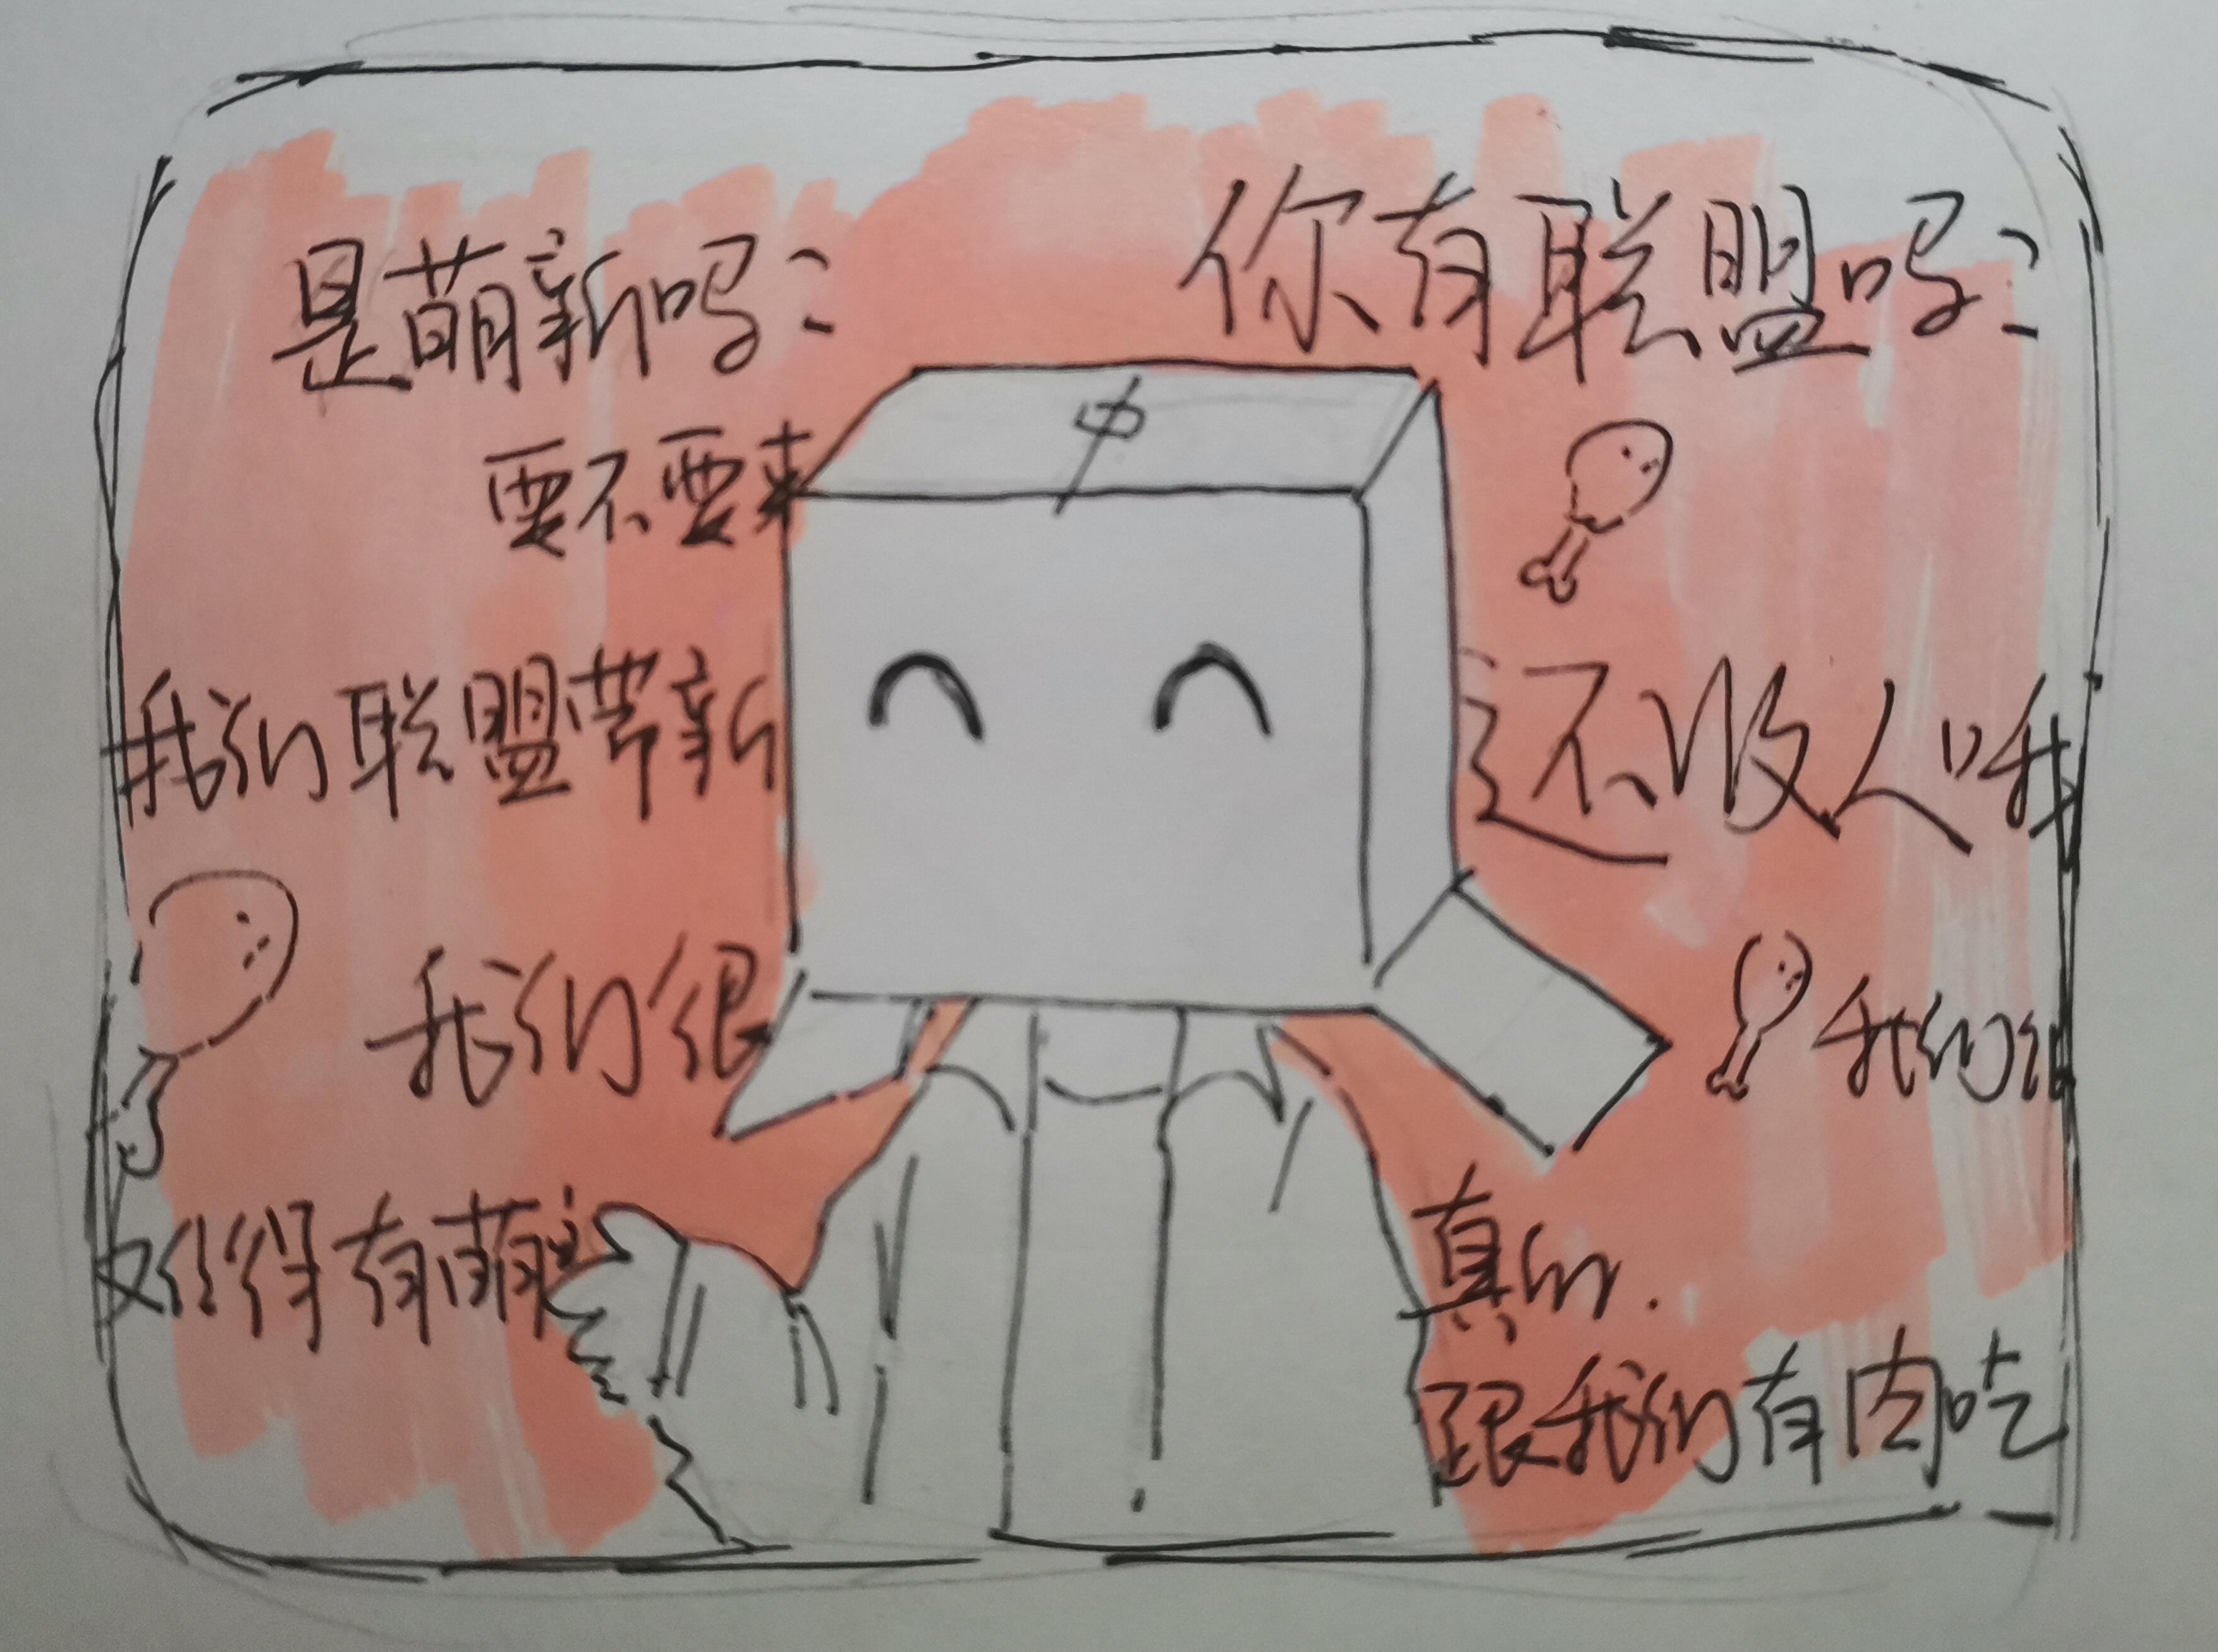 是萌新吗?
你有联盟吗?
要不要来
中
我们联盟带新
还收人哦
我们很
我们
得有萌
真的.
跟我们有肉吃